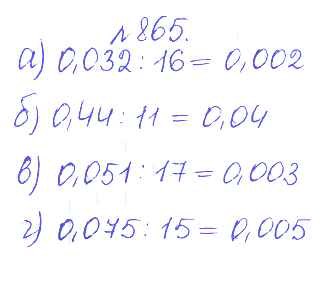 № 865.
а) 0,032 : 16 = 0,002
б) 0,44 : 11 = 0,04
в) 0,051 : 17 = 0,003
г) 0,075 : 15 = 0,005